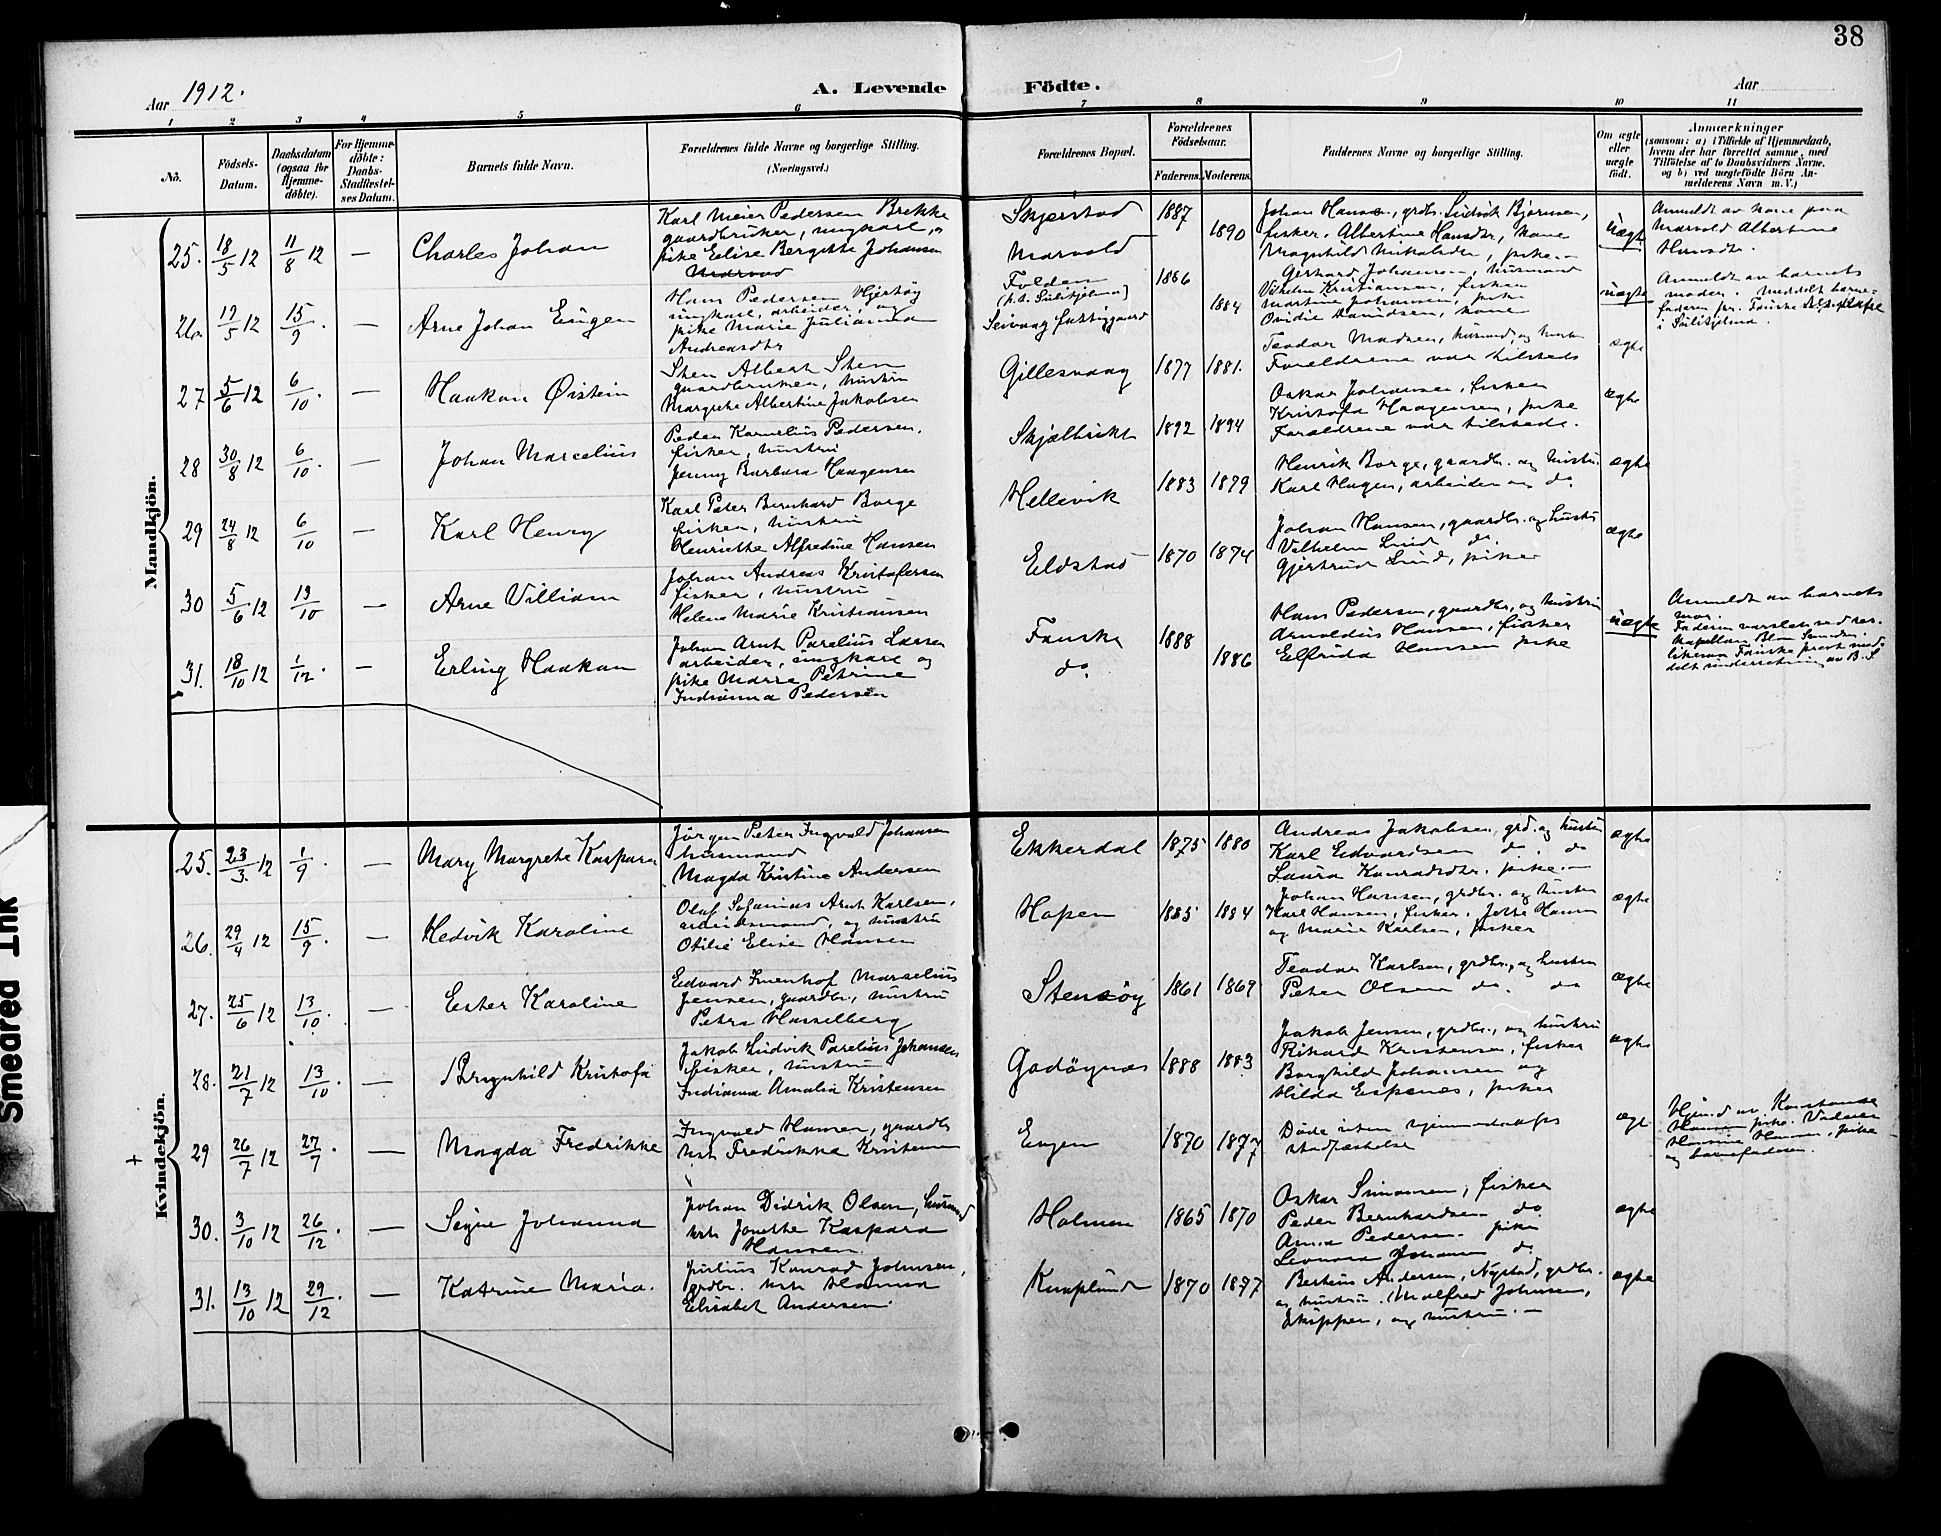 38
Aar 1912.
A. Levende Födte.
Aar
1 2 3 4 5 6 7 8 9 10 11
No.
Födsels-
Datum.
Daabsdatum
(ogsaa for
Hjemme-
döbte).
For Hjemme-
döbte:
Daabs-
Stadfæstel-
ses Datum.
Barnets fulde Navn.
Forældrenes fulde Navne og borgerlige Stilling.
(Næringsvei.)
Forældrenes Bopæl.
Forældrenes
Födselsaar.
Faderens. Moderens.
Faddernes Navne og borgerlige Stilling.
Om ægte
eller
uægte
födt.
Anmærkninger
(saasom: a) i Tilfælde af Hjemmedaab,
hvem der har forrettet samme, med
Tilföielse af to Daabsvidners Navne,
og b) ved uægtefödte Börn An-
melderens Navn m. V.)
Mandkjön.
25. 18/5 12 11/8 12 — Charles Johan
Karl Meier Pedersen Brekke
gaardbruker, ungkarl,
pike Elise Bergitte Johansen
Skjerstad
Marvold
1887 1890
Johan Hansen, grdbr. Ludvik Bjørnsen,
fisker. Albertine Hansdtr, kone
Magnhild Nikolaisdtr, pike.—
uægte
Anmeldt av kone paa
Marvold Albertine
Hansdtr.
26. 17/5 12 15/9 — Arne Johan Eugen
Hans Pedersen Hjertøy
ungkarl, arbeider, og
pike Marie Julianna
Andreasdtr
Folden
(p.t. Sulitjelma)
Seivaag fattiggaard
1886 1884
Gerhard Johansen, husmand
Vilhelm Kristiansen, fisker
Martine Johansen, pike
Ovidie Danidsen, kone
uægte
Anmeldt av barnets
moder. Meddelt barne-
faderen pr. Fauske
i Sulitjelma.
27 5/6 12 6/10. — Haakon Øistein
Sten Albert Sten
gaardbruker, hustru
Margrete Albertine Jakobsen
Gillesvaag 1877 1881.
Teodor Madsen, husmd, og hustru
Forældrene var tilstede
ægte
28 30/8 12 6/10. — Johan Marcelius
Peder Kornelius Pedersen,
fisker, hustru
Jenny Barbara Haagensen
Skjælbrikt 1892 1894
Oskar Johansen, fisker
Kristofa Haagensen, pike
Forældrene var tilstede.
ægte
29 24/8 12 6/10 — Karl Henry
Karl Peter Bernhard Borge
fisker, hustru
Henriette Alfredine Hansen
Hellevik 1883 1879
Henrik Borge, gaardbr. og hustru
Karl Hagen, arbeider og do
ægte
30 5/6 12 13/10 — Arne Villiam
Johan Andreas Kristofersen
fisker, hustru
Helene Marie Kristiansen
Eldstad 1870 1874
Johan Hansen, gaardbr. og hustru
Vilhelm Lund do.
Gjertrud Lund, pike
ægte
31. 18/10 12 1/12. — Erling Haakon
Johan Arnt Parelius Larsen
arbeider, ungkarl og
pike Marie Petrine
Indianna Pedersen
Fauske
do.
1888 1886
Hans Pedersen, gaardbr, og hustru
Arnoldus Hansen, fisker
Elfrida Hansen pike
uægte
Anmeldt av barnets
mor.
Faderen varslet ved res.
kapellan
likesaa Fauske prest med-
delt underretning av B. S
Kvindekjön.
25. 23/3. 12 1/9. — Mary Margrete Kaspara
Jørgen Peter Ingvald Johansen
husmand
Magda Kristine Andersen
Ekkerdal 1875 1880
Andreas Jakobsen, grd. og hustru
Karl Edvardsen do. do
Laura Konradsdtr. pike.—
ægte
26. 29/4 12 15/9. — Hedvik Karoline
Olaf Sefanias Arnt Karlsen,
arbeidsmand, og hustru
Otilie Elise Hansen
Hopen 1885 1884
Johan Hansen, grdbr. og hustru
Karl Hansen, fisker. Hansen
og Marie Karlsen, piker
ægte
27. 25/6 12 13/10. — Ester Karoline
Edvard Marselius
Jensen, gaardbr., hustru
Petra Hasselberg
Stensøy 1861 1869
Teodor Karlsen, grdbr., og hustru
Peter Olsen do. do
ægte
28. 21/7 12 13/10. — Brynhild Kristofa
Jakob Ludvik Parelius Johansen
fisker, hustru
Indianna Amalia Kristensen
Godøynes 1888 1883
Jakob Jensen, grdbr., og hustru
Rikard Kristensen, fisker
Borghild Johansen og
Hilda Espenes, piker
ægte
+ 29 26/7 12 27/7. — Magda Fredrikke
Ingvald Hansen, gaardbr
hstr Fredrikke Kristensen
Engen 1870 1877
Døde uten hjemmedaaps
stadfæstelse
ægt
Hjmd. av Konstanse
Hansen pike. Vidner
Hansine Hansen, pike
og barnefaderen.
30. 3/10 12 26/12. — Signe Johanna
Johan Didrik Olsen, husmd
hstr Jonette Kaspara
Hansen.
Holmen 1865 1870
Oskar Simonsen, fisker
Peder Bernhardsen do
Anna Pedersen. pike
Leonora Johansen do.
ægte
31. 13/10 12 29/12. — Katrine Maria.
Julius Konrad Johnsen,
grdbr. hstr Hanna
Elisabet Andersen.
Knaplund 1870 1877
Berteus Andersen, Nystad, grdbr.
og hustru. Malfred Johnsen,
Skipper, og hustru.—
ægte
Smeared Ink